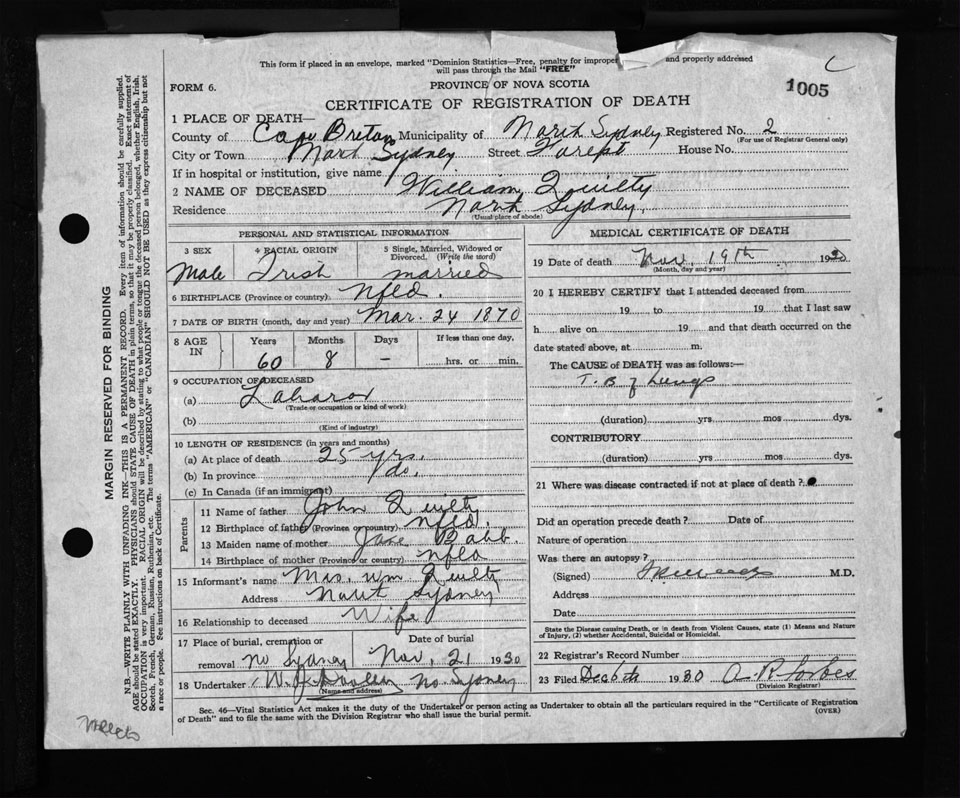 This form if placed in an envelope, marked "Dominion Statistics—Free, penalty for improper and properly addressed
will pass through the Mail "FREE"
FORM 6.
PROVINCE OF NOVA SCOTIA
1005
CERTIFICATE OF REGISTRATION OF DEATH
1 PLACE OF DEATH—
County of Cape Breton Municipality of North Sydney Registered No. 2
(For use of Registrar General only)
City or Town North Sydney Street House No.
If in hospital or institution, give name
2 NAME OF DECEASED William Quilty
Residence North Sydney
(Usual place of abode)
PERSONAL AND STATISTICAL INFORMATION
3 SEX 4 RACIAL ORIGIN 5 Single, Married, Widowed or Divorced. (Write the word)
Male Irish married
6 BIRTHPLACE (Province or country) Nfld.
7 DATE OF BIRTH (month, day and year) Mar. 24 1870
8 AGE IN Years Months Days If less than one day,
60 8 – hrs. or min.
9 OCCUPATION OF DECEASED
(a) Laborer
(Trade or occupation or kind of work)
(b)
(Kind of industry)
10 LENGTH OF RESIDENCE (in years and months)
(a) At place of death 25 yrs.
(b) In province do.
(c) In Canada (if an immigrant)
Parents
11 Name of father John Quilty
12 Birthplace of father (Province or country) Nfld.
13 Maiden name of mother Jane Babb.
14 Birthplace of mother (Province or country) Nfld
15 Informant's name Mrs. Wm Quilty
Address North Sydney
16 Relationship to deceased Wife
17 Place of burial, cremation or removal No Sydney Date of burial Nov. 21 1930
18 Undertaker W. J. Dooley No. Sydney
(Name and address)
MEDICAL CERTIFICATE OF DEATH
19 Date of death Nov. 19th 1930
(Month, day and year)
20 I HEREBY CERTIFY that I attended deceased from
19 to 19 that I last saw
h alive on 19 and that death occurred on the
date stated above, at m.
The CAUSE of DEATH was as follows:—
T. B of Lungs
(duration) yrs mos dys.
CONTRIBUTORY
(duration) yrs. mos. dys.
21 Where was disease contracted if not at place of death?
Did an operation precede death? Date of
Nature of operation
Was there an autopsy?
(Signed) M.D.
Address
Date
State the Disease causing Death, or in death from Violent Causes, state (1) Means and Nature
of Injury, (2) whether Accidental, Suicidal or Homicidal.
22 Registrar's Record Number
23 Filed Dec 6th 1930 A. R. Forbes
(Division Registrar)
Sec. 46—Vital Statistics Act makes it the duty of the Undertaker or person acting as Undertaker to obtain all the particulars required in the "Certificate of Registration
of Death" and to file the same with the Division Registrar who shall issue the burial permit. (OVER)
MARGIN RESERVED FOR BINDING
N.B.—WRITE PLAINLY WITH UNFADING INK—THIS IS A PERMANENT RECORD. Every item of information should be carefully supplied.
AGE should be stated EXACTLY. PHYSICIANS should STATE CAUSE OF DEATH in plain terms, so that it may be properly classified. Exact statement of
OCCUPATION is very important. RACIAL ORIGIN will be described by stating to what people or tongue the deceased person belonged, whether English, Irish,
Scotch, French, German, Russian, Ruthenian, etc. The terms "AMERICAN" or "CANADIAN" SHOULD NOT BE USED as they express citizenship but not
a race or people. See instructions on back of Certificate.